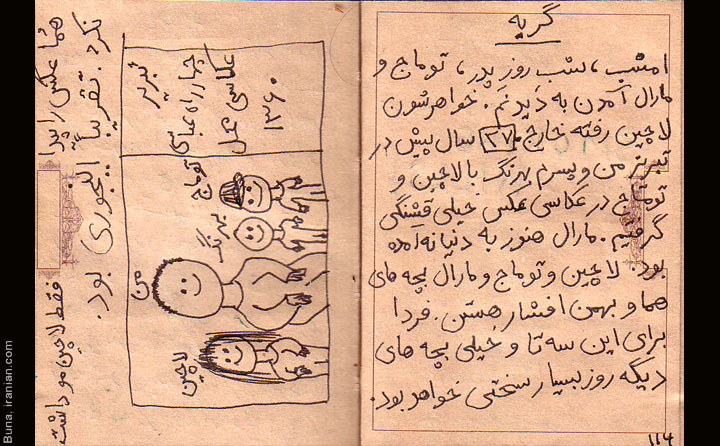 گریه
امشب، شب روز پدر، توماج و
مارال آمدن به دیدنم. خواهرشون
لاچین رفته خارج. ۲۷ سال پیش در
تبریز من و پسرم بهرنگ با لاچین و
توماج در عکاسی عکس خیلی قشنگی
گرفتیم. مارال هنوز به دنیا نیامده
بود. لاچین و توماج و مارال بچه های
هما و بهمن افشار هستن. فردا
برای این سه تا و خیلی بچه های
دیگه روز بسیار سختی خواهد بود.
۱۱۴
هما عکس را پیدا
نکرد. تقریباً اینجوری بود.
فقط لاچین مو داشت
تبریز
چهارراه عباسی
عکاسی عمل
۱۳۶۰
توماج
بهرنگ
من
لاچین
Buna, iranian.com